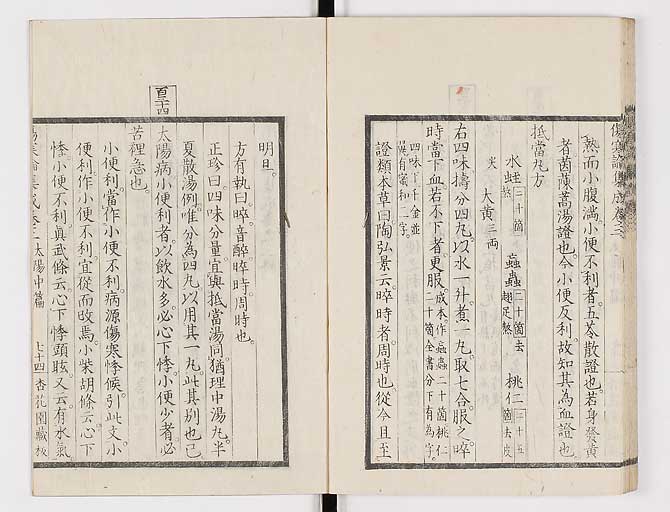 傷寒論集成卷三
熱而小腹滿小便不利者五苓散證也若身發黄
者茵蔯蒿湯證也今小便反利故知其為血證也
抵當丸方
水蛭二十箇熬 蝱蟲二十箇去翅足熬 桃仁二十五箇去皮
尖 大黄三兩
右四味擣分四丸以水一升煮一丸取七合服之晬
時當下血若不下者更服成本作蝱蟲二十箇桃仁二十箇全書分下有為字
四味下千金並
異有蜜和二字
證類本草曰陶弘景云晬時者周時也從今旦至
明旦
方有執曰晬音醉晬時周時也
正珍曰四味分量宜與抵當湯同猶理中湯丸半
夏散湯例唯分為四丸以用其一丸此其別也已
百三十四
太陽病小便利者以飲水多必心下悸小便少者必
苦裡急也
小便利當作小便不利病源傷寒悸候引此文小
便利作小便不利宜從而改焉小柴胡條云心下
悸小便不利真武條云心下悸頭眩又云有水氣
傷寒論集成卷三 太陽中篇 七十四 杏花園藏板